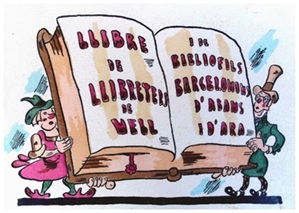 LLIBRE
DE
LLIBRETERS
DE
VELL
I DE
BIBLIOFILS
BARCELONINS
D'ABANS
I D'ARA